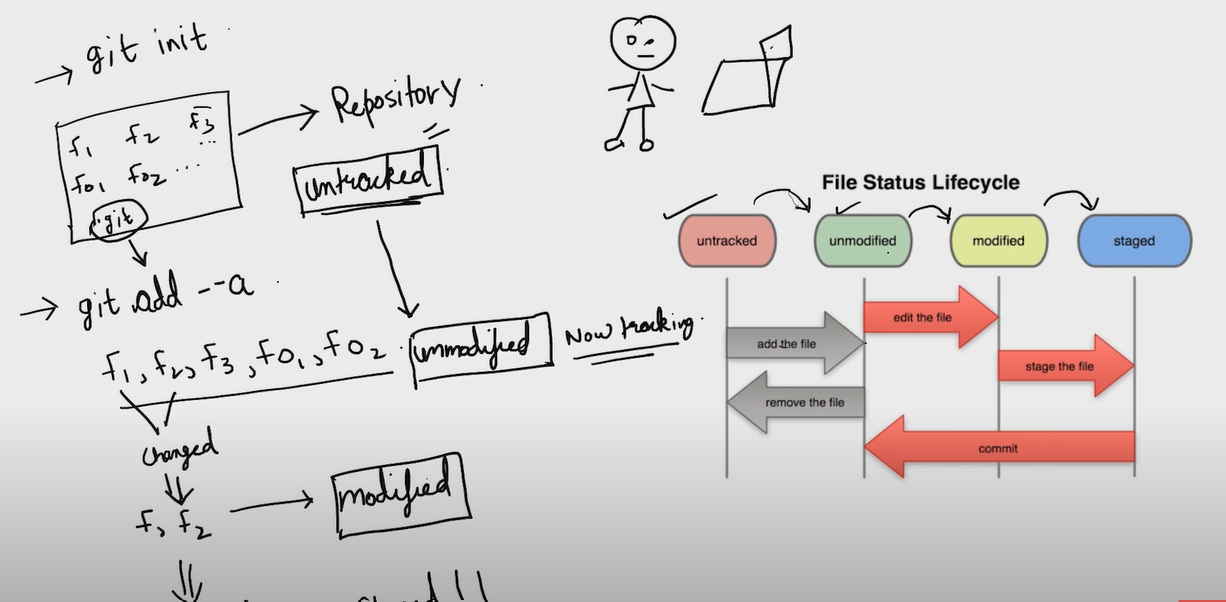 → git init
f1 f2 f3 ...
f01 f02 ...
.git
→ Repository
untracked
→ git add --a
f1, f2, f3, f01, f02
unmodified
Now tracking
changed
f1, f2
modified
File Status Lifecycle
untracked
unmodified
modified
staged
edit the file
add the file
stage the file
remove the file
commit